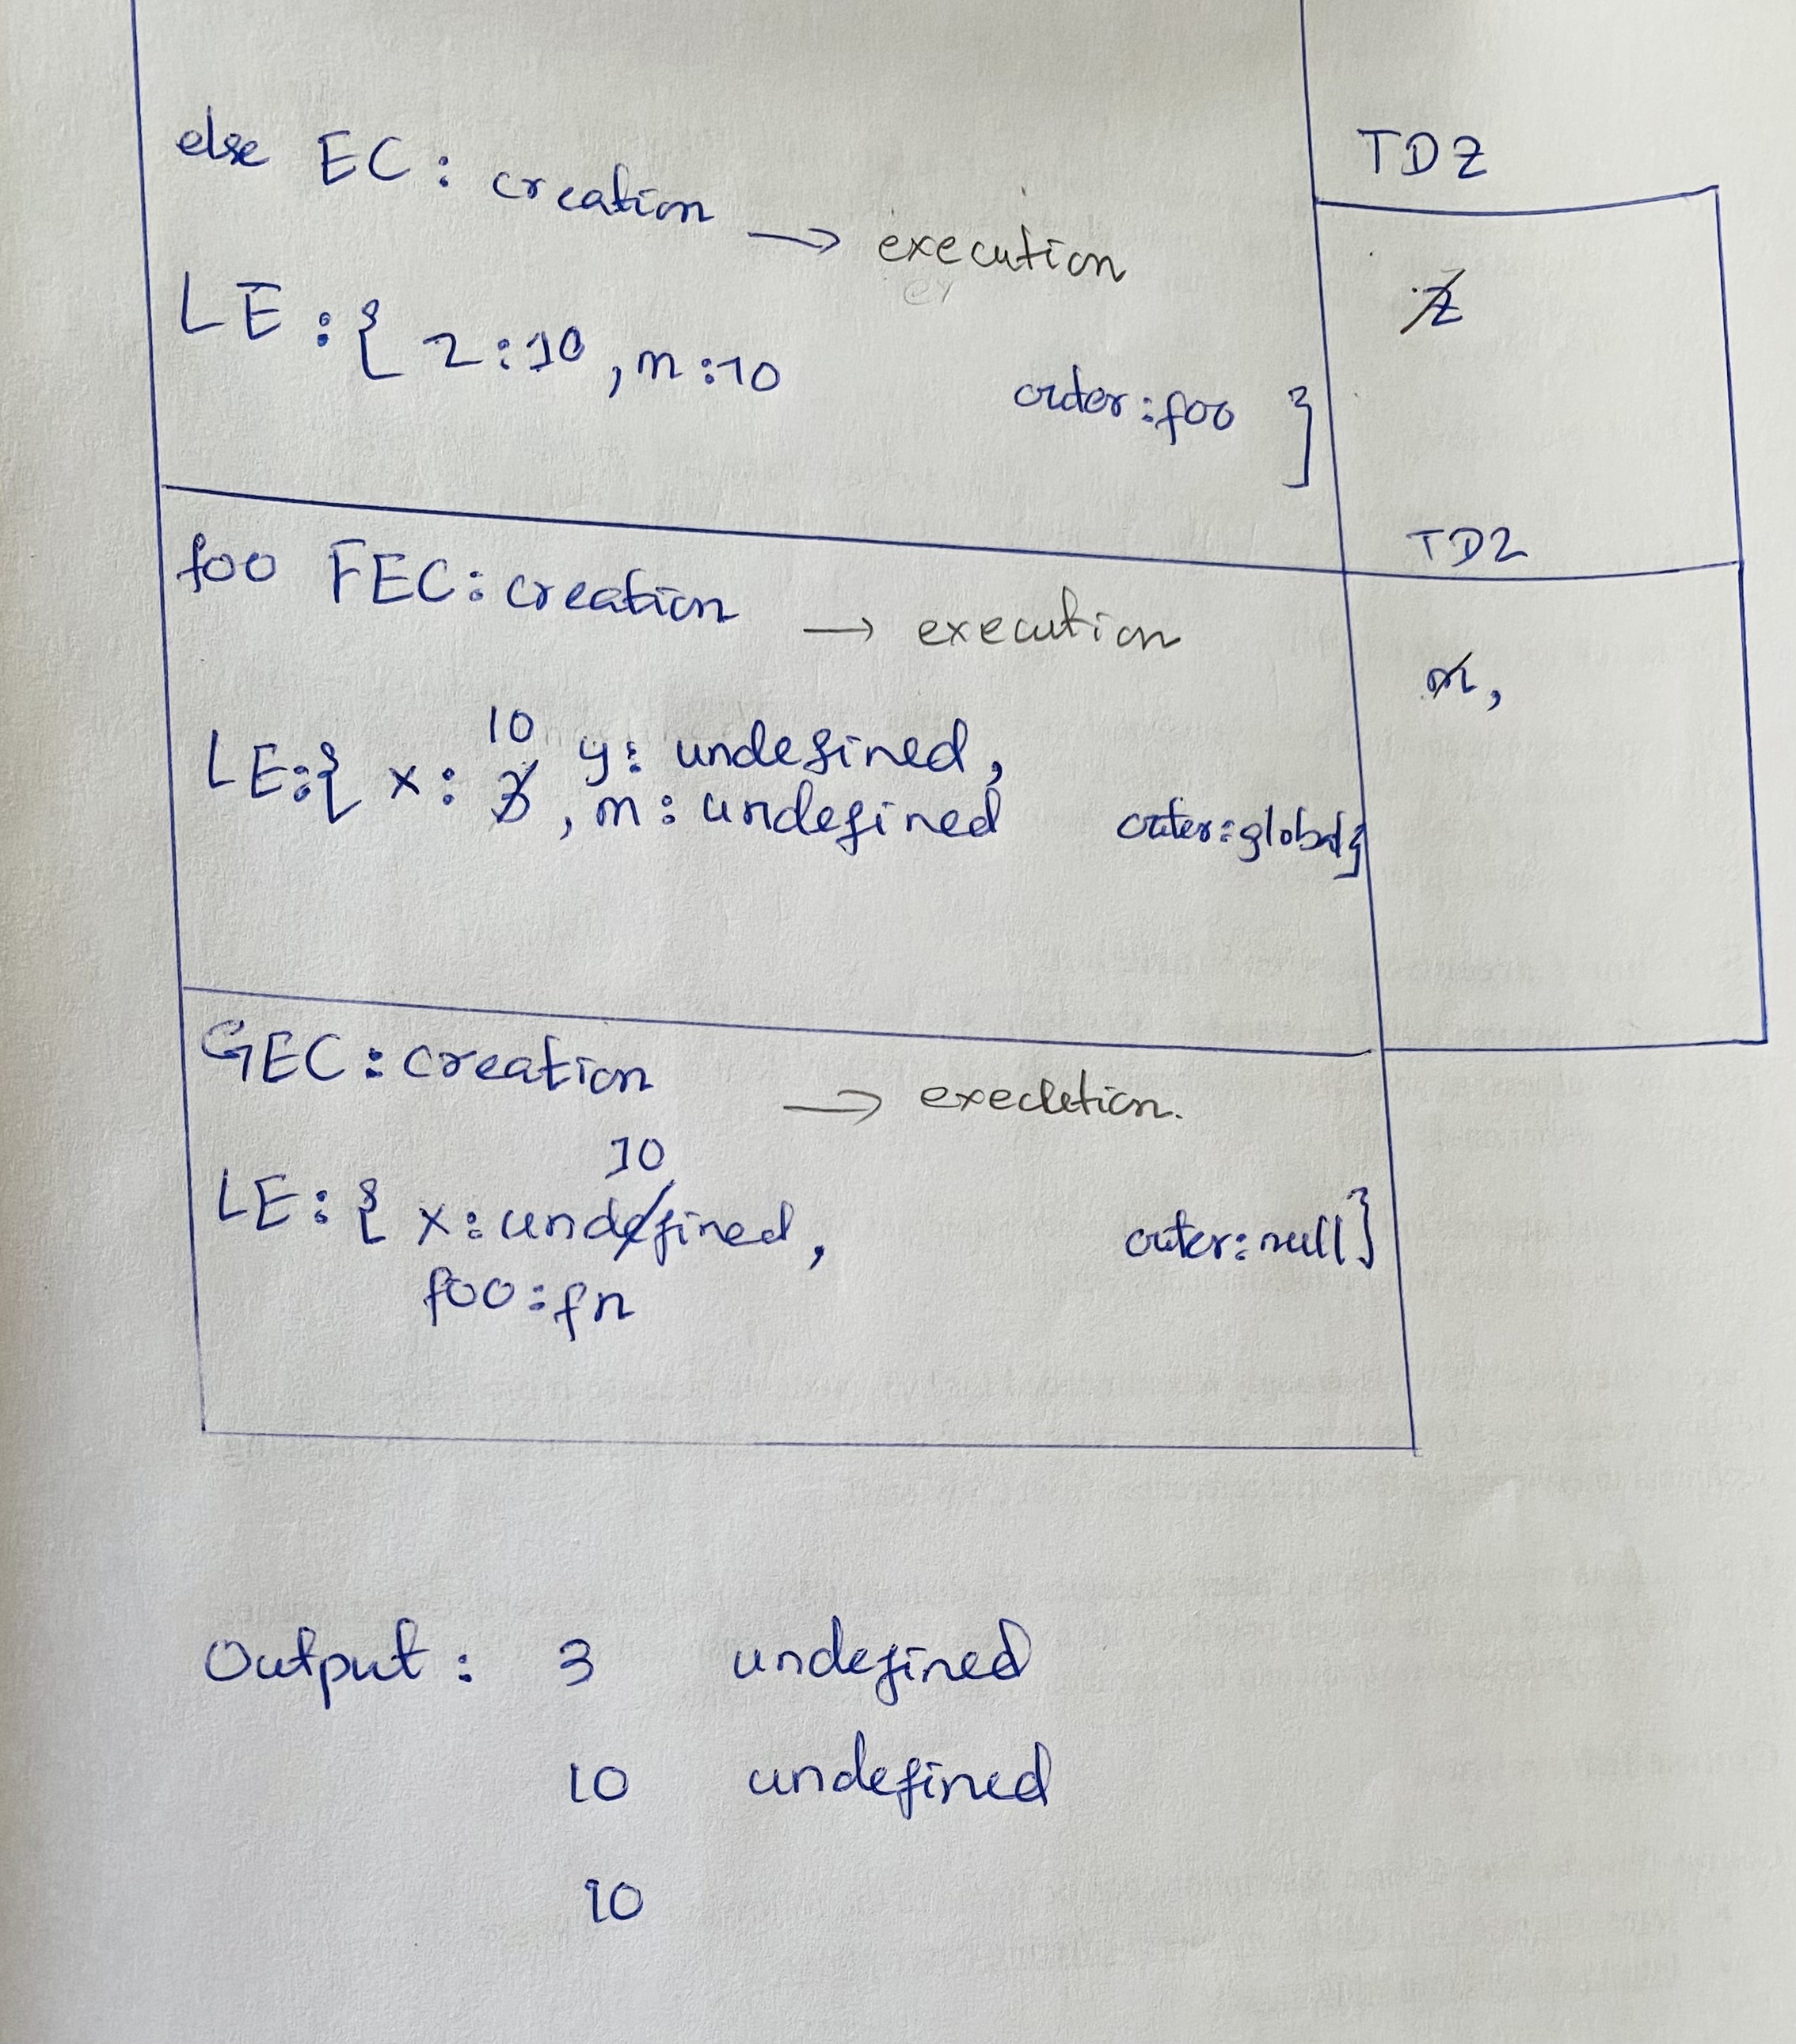 else EC: creation → execution
TDZ
z
LE:{ z:10, m:10 outer:foo }
foo FEC: creation → execution
TDZ
m,
10
LE:{ x: 3 y: undefined,
, m: undefined outer:global}
GEC: creation → execution.
10
LE:{ x: undefined, outer:null}
foo:fn
Output: 3 undefined
10 undefined
10